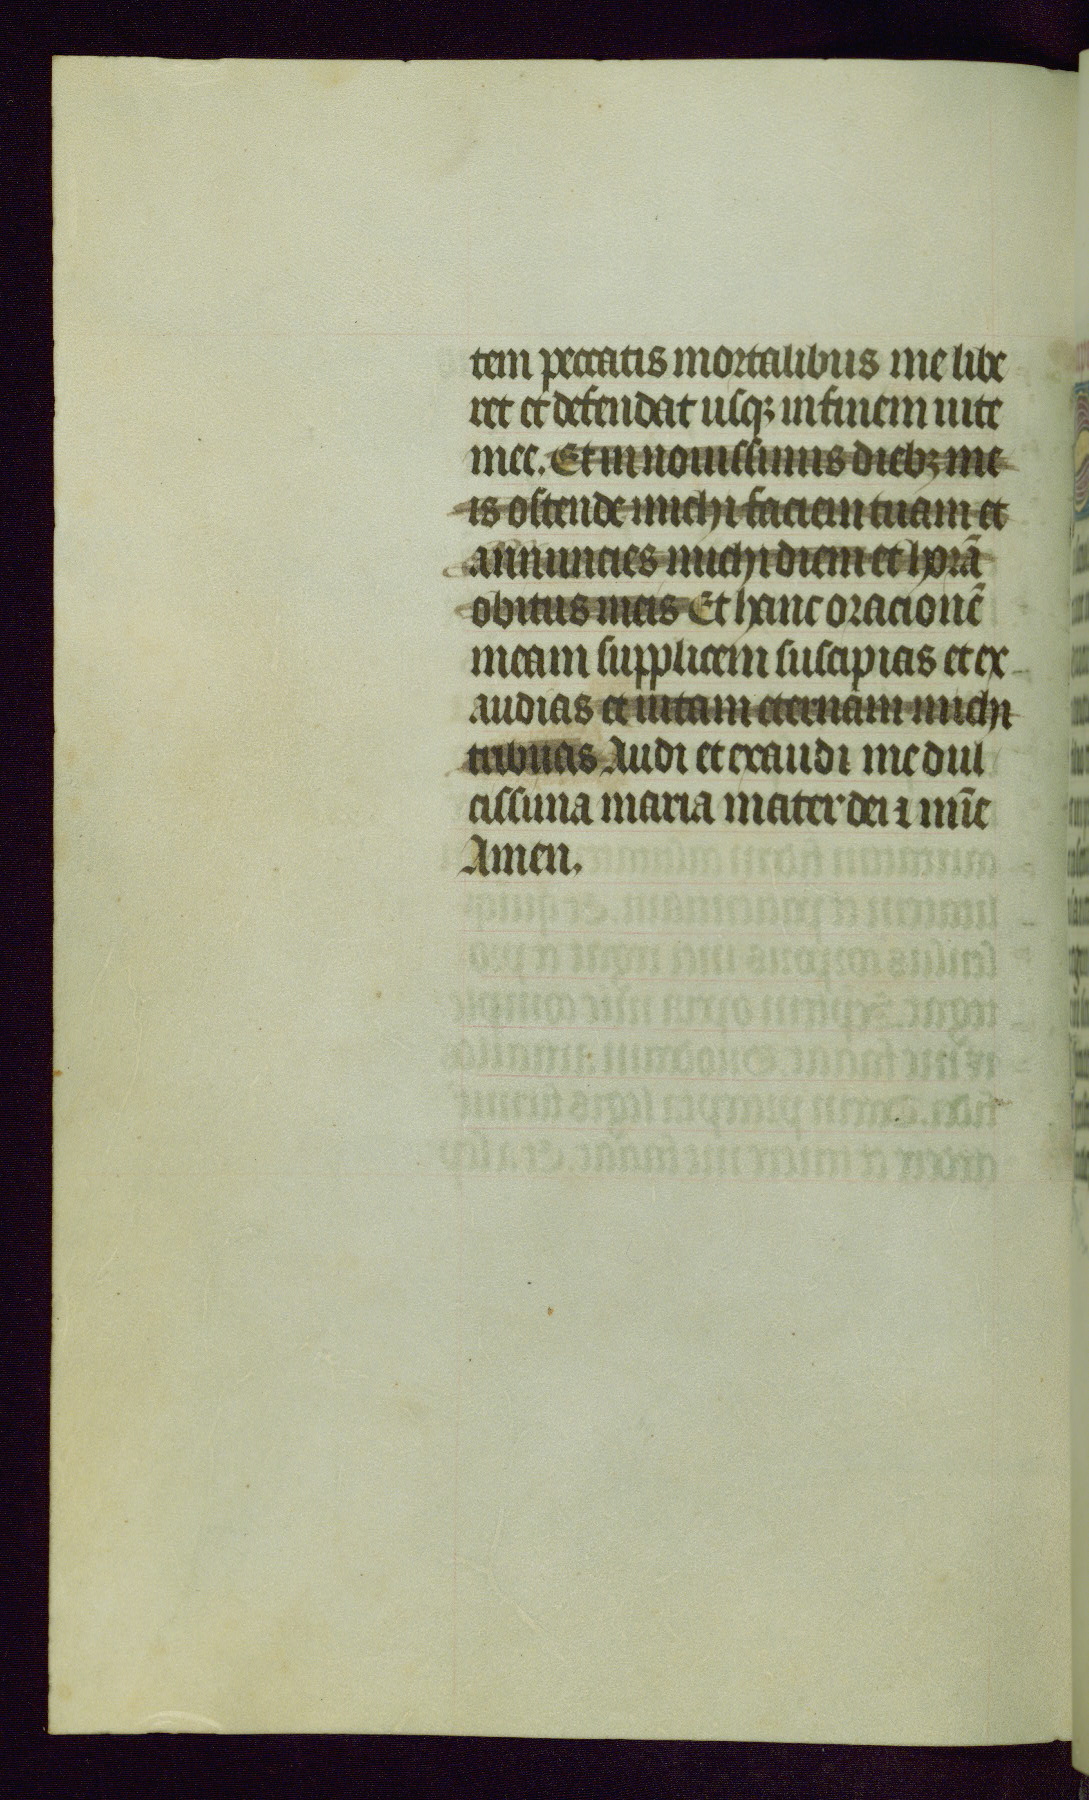 tem peccatis mortalibus me libe
ret et defendat usqꝫ in finem uite
mee. Et in nouissimis diebꝫ me
is ostende michi faciem tuam et
annuncies michi diem et horã
obitus meis Et hanc oracionẽ
meam supplicem suscipias et ex
audias et uitam eternam michi
tribuas Audi et exaudi me dul
cissima maria mater dei ⁊ mĩe
Amen.